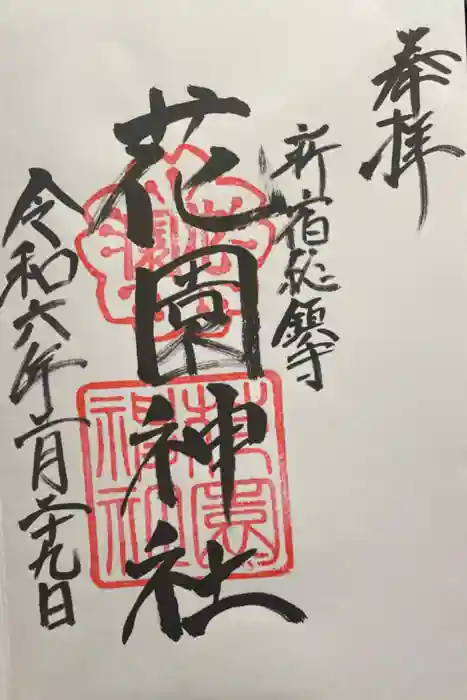 奉拝
新宿総鎮守
花園神社
令和六年二月二十九日
花園
花園神社